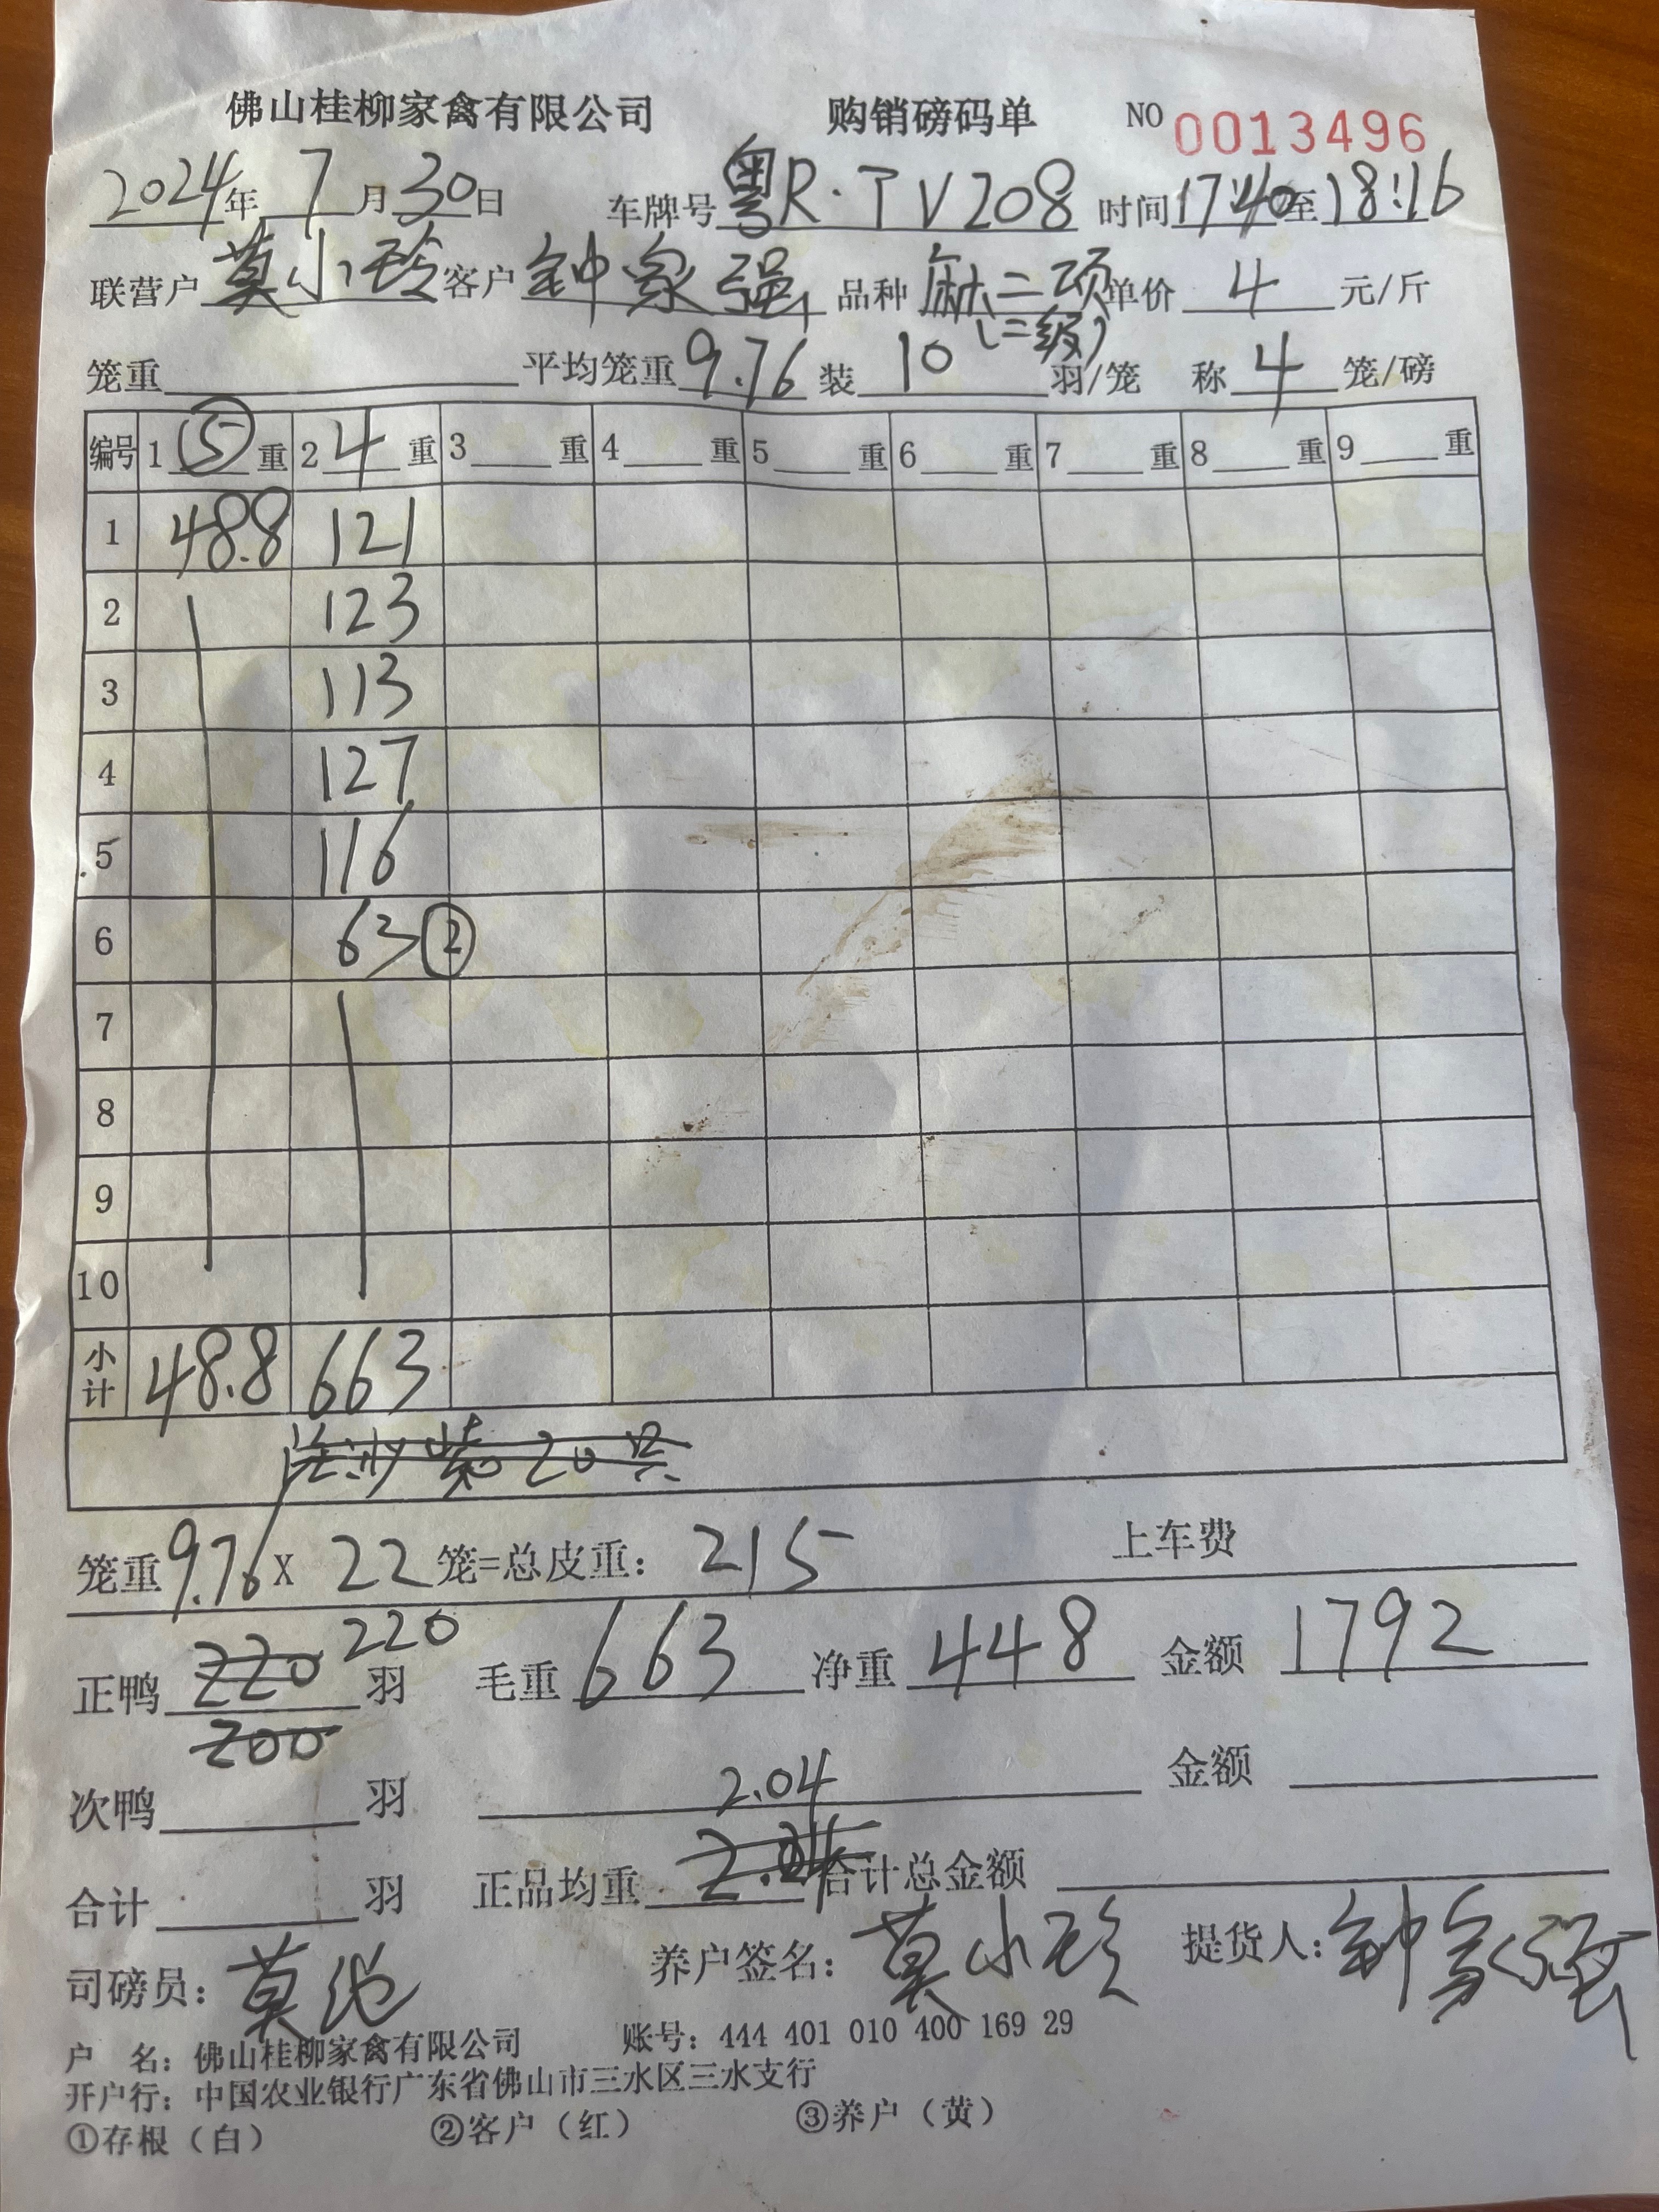 佛山桂柳家禽有限公司 购销磅码单 NO 0013496
2024年 7月30日 车牌号 粤R·TV208 时间17:40至18:16
联营户 莫小玲 客户 钟家强 品种 麻二项 单价 4 元/斤
(二级)
笼重 平均笼重 9.76 装 10 羽/笼 称 4 笼/磅
编号 1 ⑤ 重 2 4 重 3 重 4 重 5 重 6 重 7 重 8 重 9 重
1 48.8 121
2 123
3 113
4 127
5 116
6 63 ②
7
8
9
10
小计 48.8 663
20只
笼重 9.76 X 22 笼=总皮重: 215 上车费
正鸭 220 220 羽 毛重 663 净重 448 金额 1792
200
次鸭 羽 2.04 金额
合计 羽 正品均重 合计总金额
司磅员: 莫 养户签名: 莫小玲 提货人: 钟家强
户 名: 佛山桂柳家禽有限公司 账号: 444 401 010 400 169 29
开户行: 中国农业银行广东省佛山市三水区三水支行
①存根(白) ②客户(红) ③养户(黄)